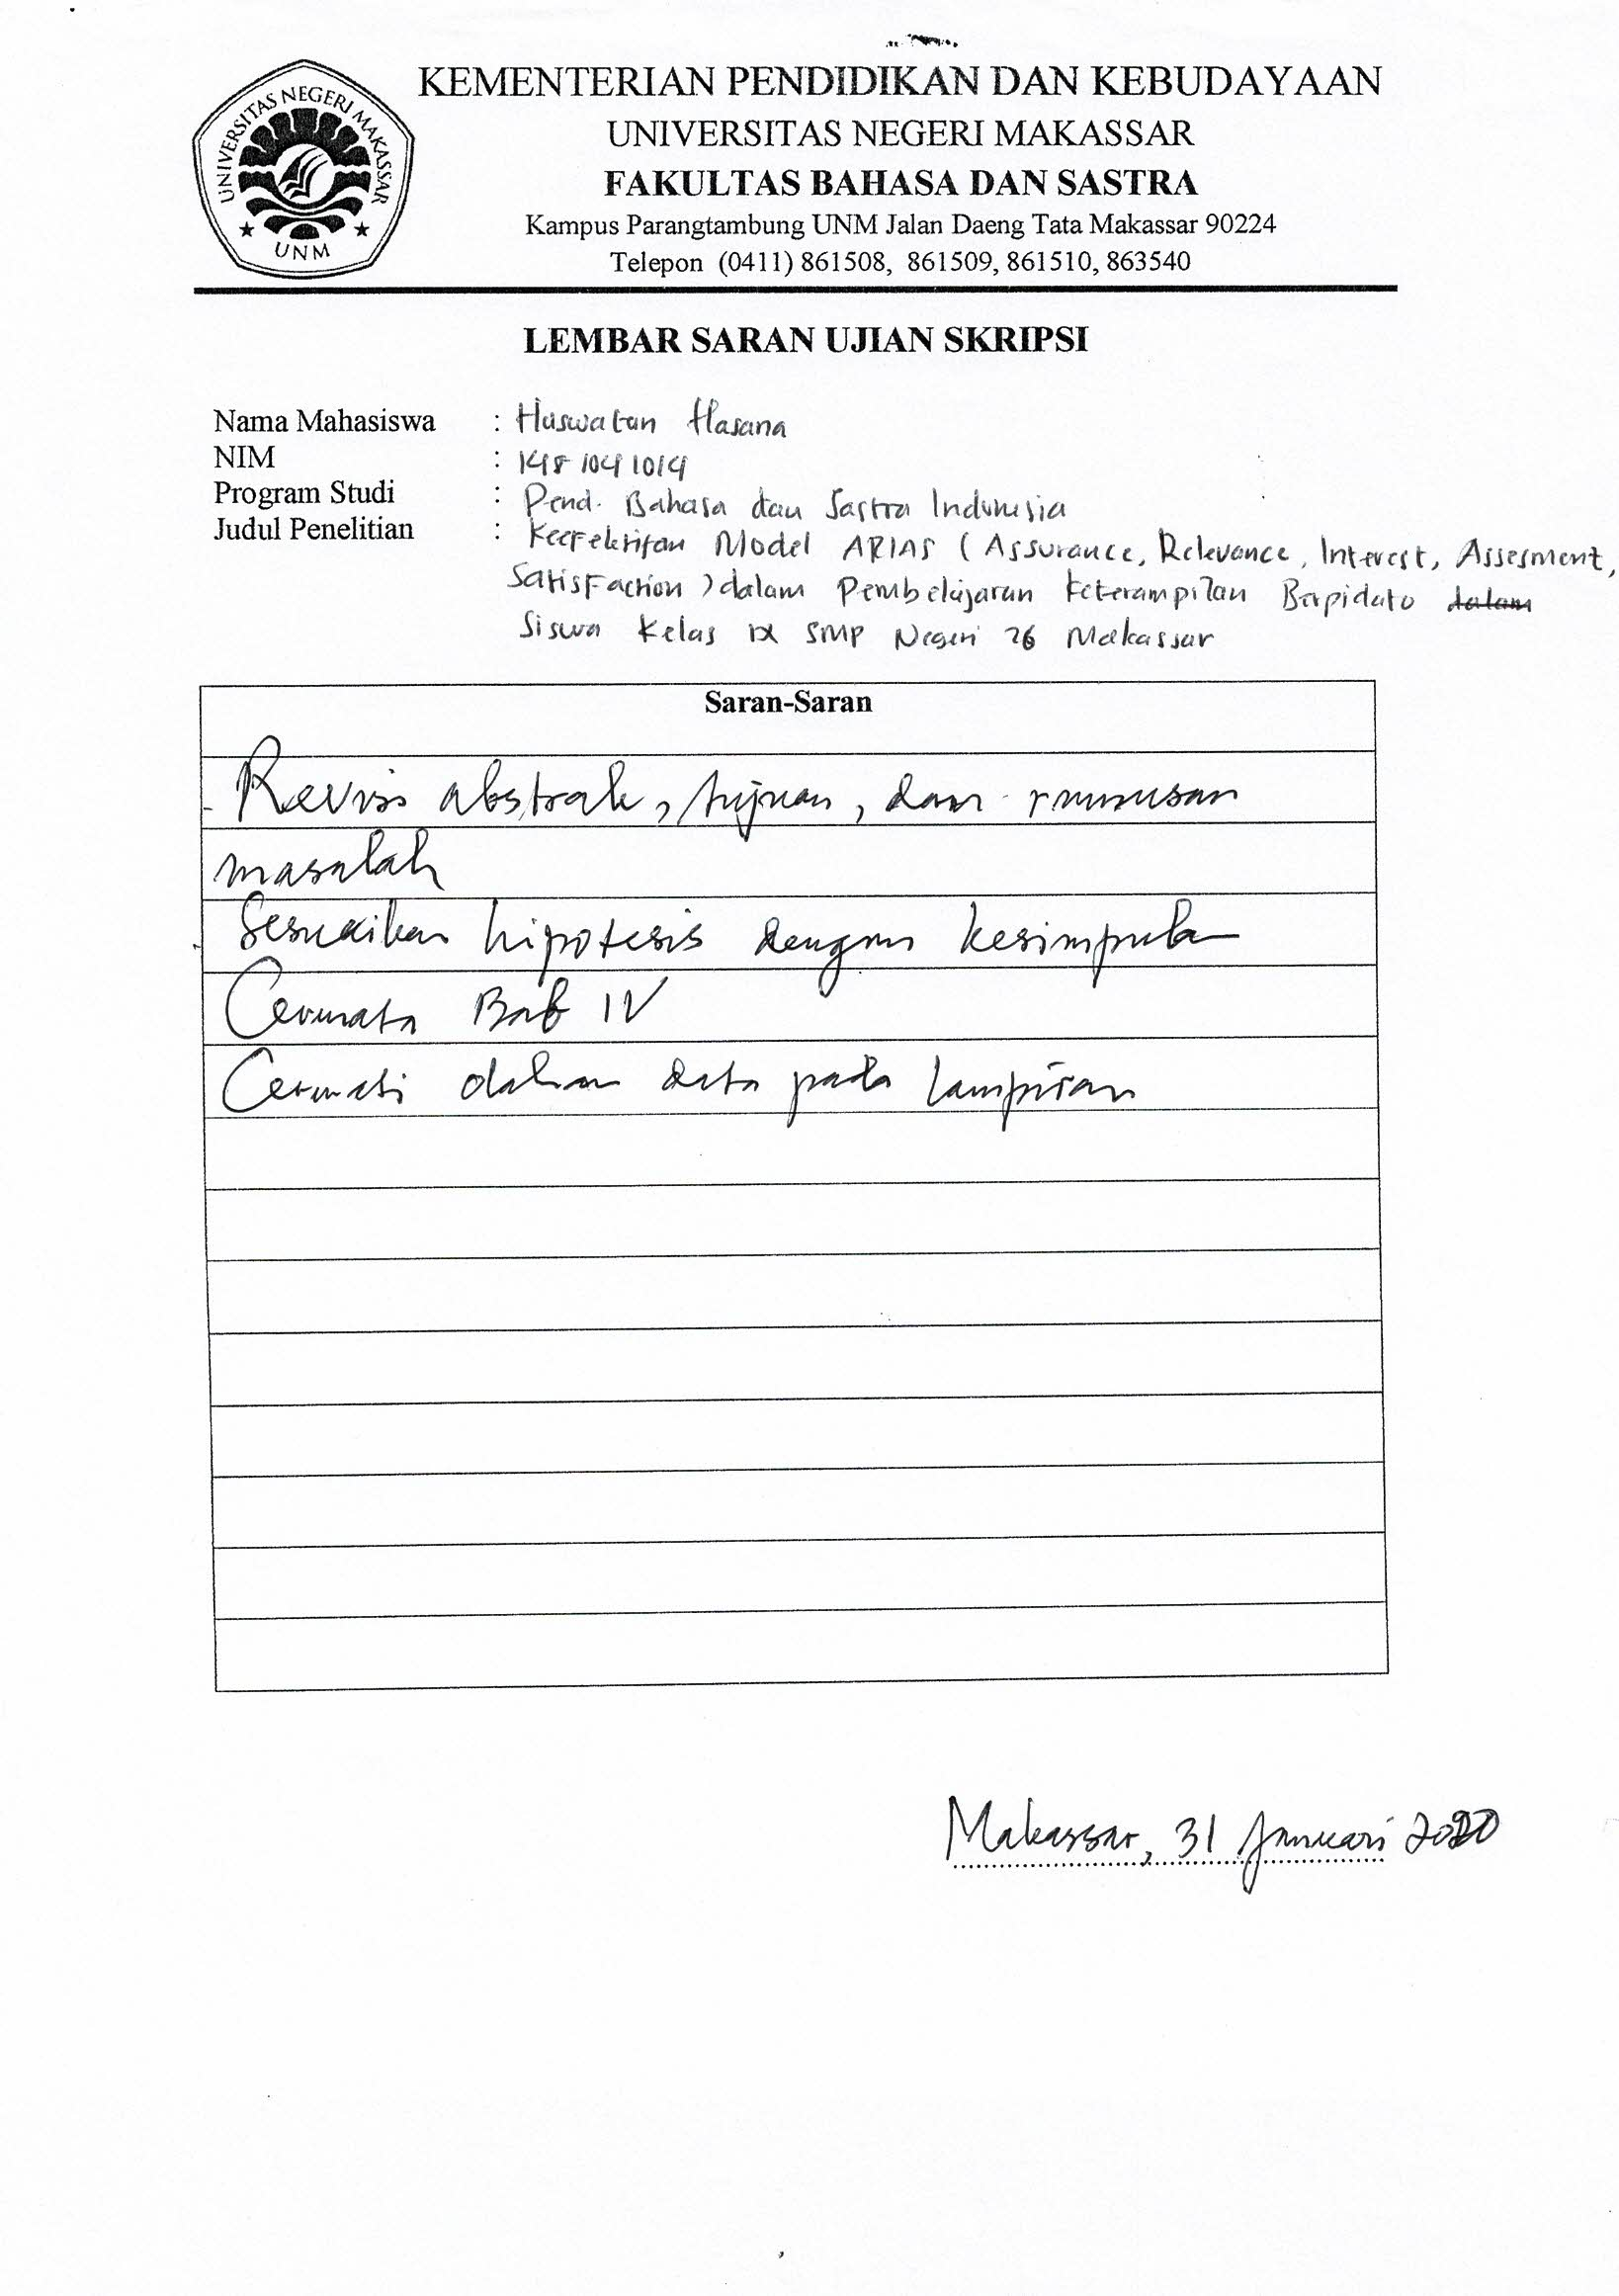 UNIVERSITAS NEGERI MAKASSAR
UNM
KEMENTERIAN PENDIDIKAN DAN KEBUDAYAAN
UNIVERSITAS NEGERI MAKASSAR
FAKULTAS BAHASA DAN SASTRA
Kampus Parangtambung UNM Jalan Daeng Tata Makassar 90224
Telepon (0411) 861508, 861509, 861510, 863540
LEMBAR SARAN UJIAN SKRIPSI
Nama Mahasiswa : Huswatun Hasana
NIM : 148 104 1014
Program Studi : Pend. Bahasa dan Sastra Indonesia
Judul Penelitian : Keefektifan Model ARIAS (Assurance, Relevance, Interest, Assesment,
Satisfaction) dalam Pembelajaran Keterampilan Berpidato dalam
Siswa Kelas IX SMP Negeri 26 Makassar
Saran-Saran
- Revisi abstrak, tujuan, dan rumusan
masalah
- Sesuaikan hipotesis dengan kesimpulan
Cermata Bab IV
Cermati data pada lampiran
Makassar, 31 Januari 2020